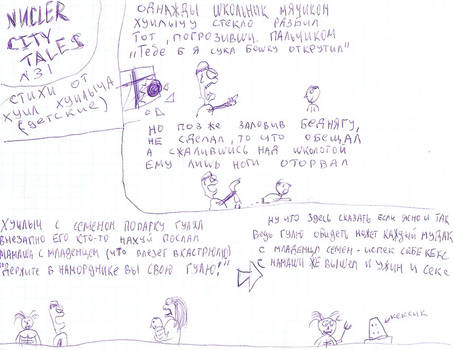 NUCLER
CITY
TALES
N31
СТИХИ ОТ
ХУИЛ ХУИЛЫЧА
(ДЕТСКИЕ)
ОДНАЖДЫ ШКОЛЬНИК МЯЧИКОМ
ХУИЛЫЧУ СТЕКЛО РАЗБИЛ
ТОТ, ПОГРОЗИВШИ ПАЛЬЧИКОМ
„ТЕБЕ Б Я СУКА БОШКУ ОТКРУТИЛ"
НО ПОЗЖЕ ЗАЛОВИВ БЕДНЯГУ,
НЕ СДЕЛАЛ, ТО ЧТО ОБЕЩАЛ
А СЖАЛИВШИСЬ НАД ШКОЛОТОЙ
ЕМУ ЛИШЬ НОГИ ОТОРВАЛ
ХУИЛЫЧ С СЕМЕНОМ ПО ПАРКУ ГУЛЯЛ
ВНЕЗАПНО ЕГО КТО-ТО НАХУЙ ПОСЛАЛ
МАМАША С МЛАДЕНЦЕМ (ЧТО ВЛЕЗЕТ В КАСТРЮЛЮ)
"ДЕРЖИТЕ В НАМОРДНИКЕ ВЫ СВОЮ ГУЛЮ!"
НУ ЧТО ЗДЕСЬ СКАЗАТЬ ЕСЛИ ЯСНО И ТАК
ВЕДЬ ГУЛЮ ОБИДЕТЬ МОЖЕТ КАЖДЫЙ МУДАК
С МЛАДЕНЦА СЕМЕН - ИСПЕК СЕБЕ КЕКС
С МАМАШИ ЖЕ ВЫШЕЛ И УЖИН И СЕКС
КЕКСИК